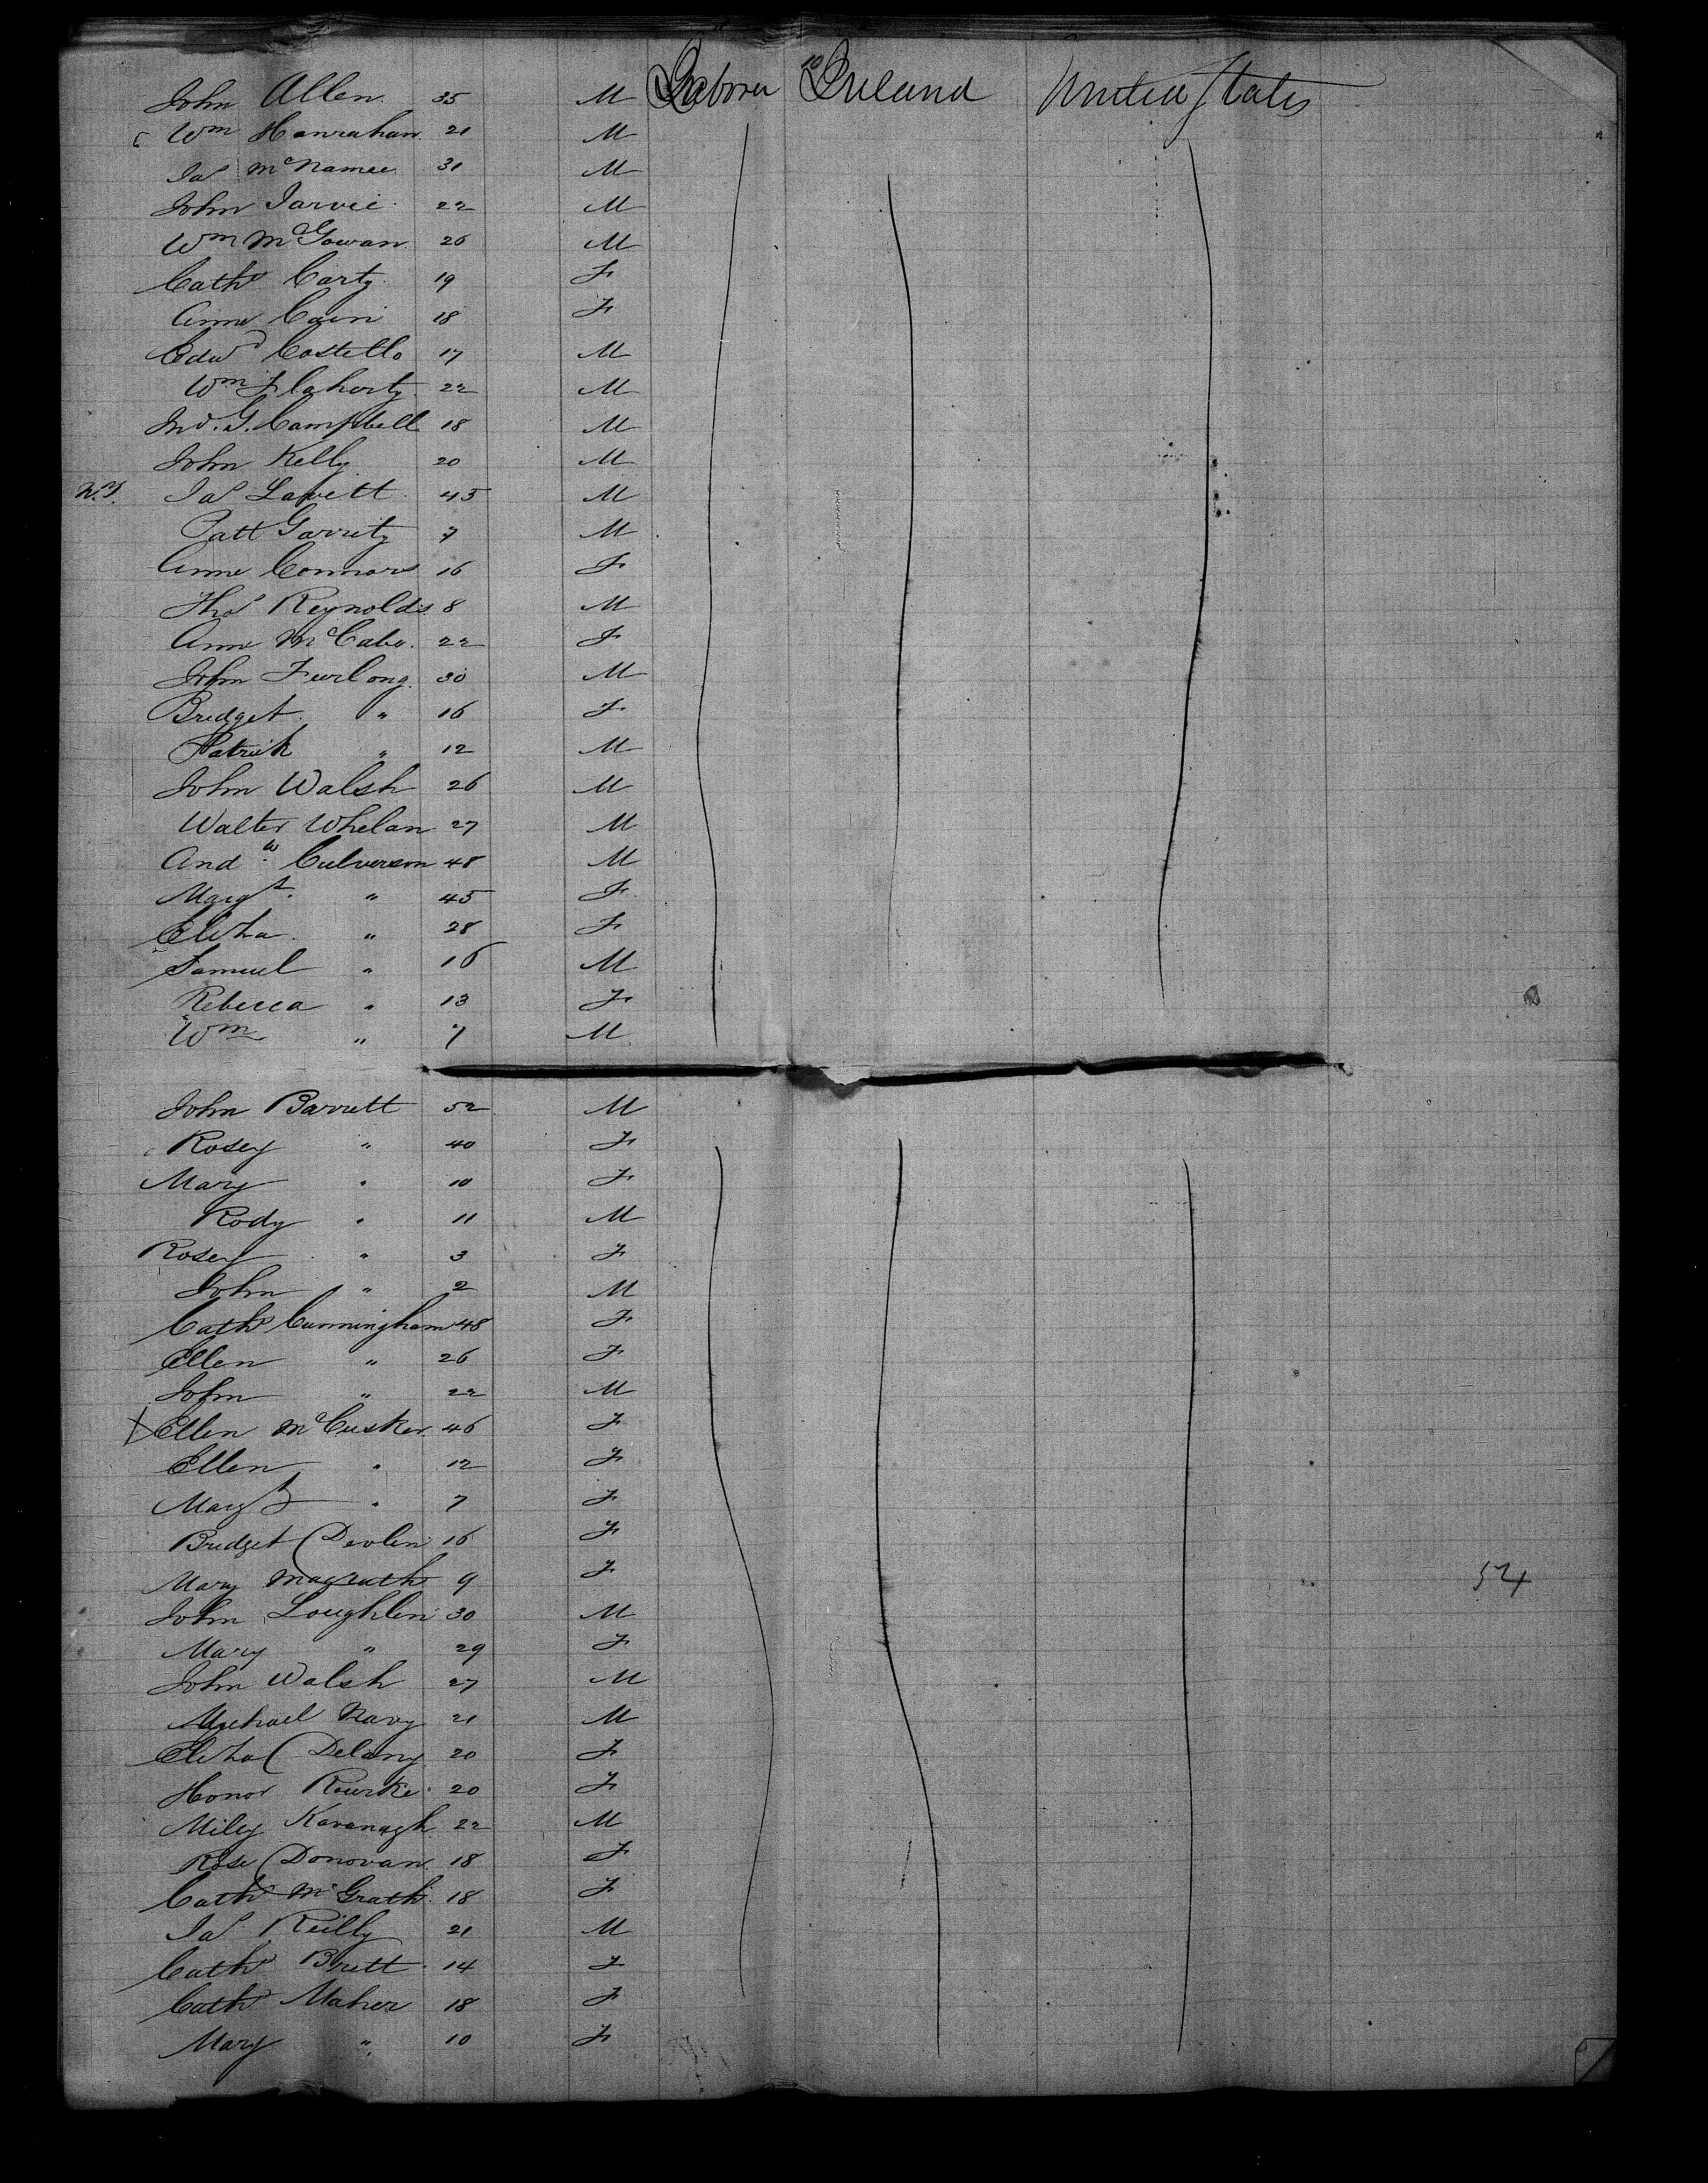 John Allen 35 M Laborer Ireland United States
Wm Hanrahan 21 M
Jas McNamee 31 M
John Jarvie 22 M
Wm McGowan 26 M
Cath Carty 19 F
Anne Cain 18 F
Edwd Costello 17 M
Wm Flaherty 22 M
Jno. G. Campbell 18 M
John Kelly 20 M
Jas Lavett 45 M
Patt Garrity 7 M
Anne Connors 16 F
Thos Reynolds 8 M
Anne McCabe 22 F
John Furlong 30 M
Bridget " 16 F
Patrick " 12 M
John Walsh 26 M
Walter Whelan 27 M
Andw Culverson 48 M
Margt " 45 F
Eliza " 28 F
Samuel " 16 M
Rebecca " 13 F
Wm " 7 M
John Barrett 52 M
Rosey " 40 F
Mary " 10 F
Rody " 11 M
Rosey " 3 F
John " 2 M
Cath Cunningham 48 F
Ellen " 26 F
John " 22 M
Ellen McCusker 46 F
Ellen " 12 F
Margt " 7 F
Bridget Devlin 16 F
Mary Magrath 9 F
John Loughlin 30 M
Mary " 29 F
John Walsh 27 M
Michael Navy 21 M
Eliza Delany 20 F
Honor Rourke 20 F
Miley Kavanagh 22 M
Rose Donovan 18 F
Cath McGrath 18 F
Jas Reilly 21 M
Cath Brett 14 F
Cath Maher 18 F
Mary " 10 F
54